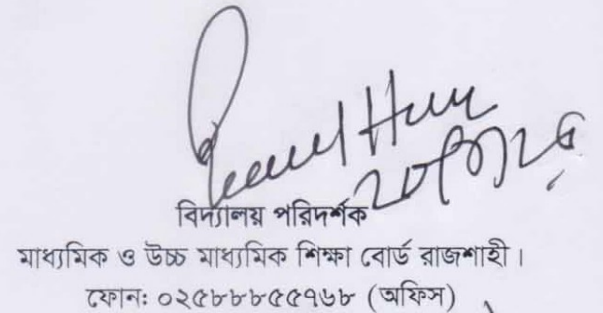 বিদ্যালয় পরিদর্শক
মাধ্যমিক ও উচ্চ মাধ্যমিক শিক্ষা বোর্ড রাজশাহী।
ফোনঃ ০২৫৮৮৮৫৫৭৬৮ (অফিস)